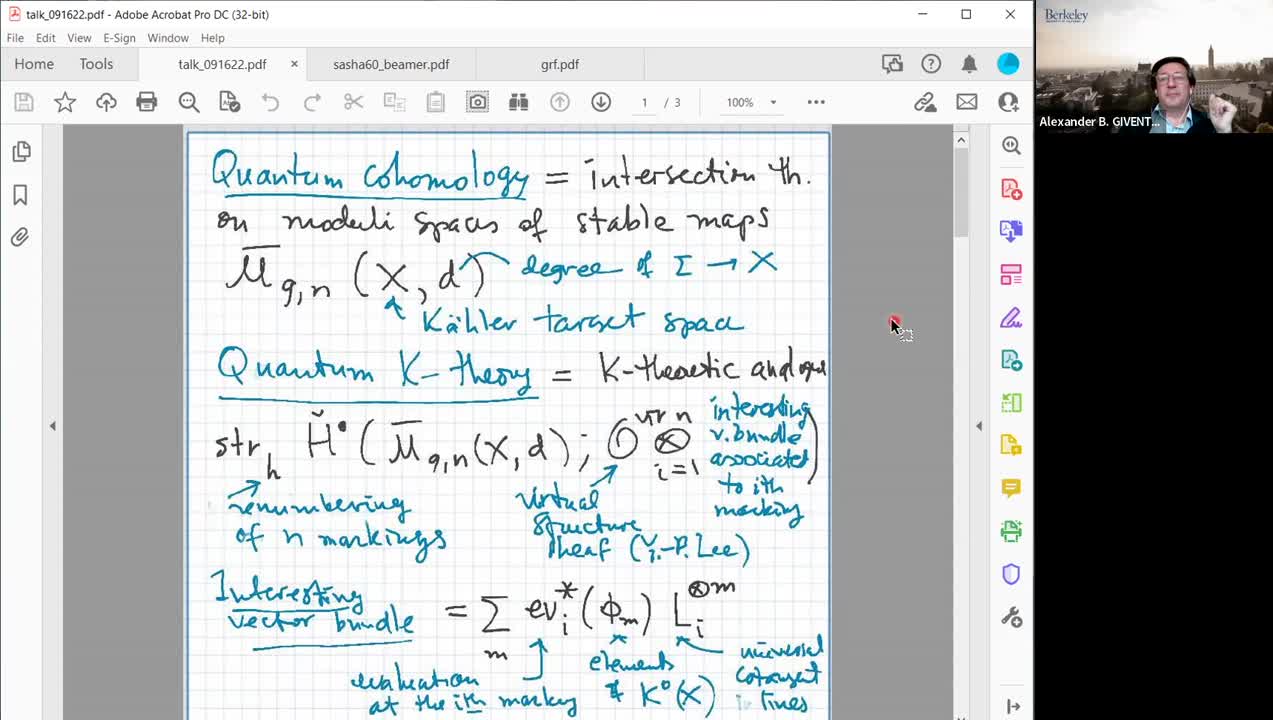 talk_091622.pdf - Adobe Acrobat Pro DC (32-bit)
File Edit View E-Sign Window Help
Home Tools talk_091622.pdf × sasha60_beamer.pdf grf.pdf
1 / 3 100%
Berkeley
Alexander B. GIVENT...
Quantum cohomology = intersection th.
on moduli spaces of stable maps
M̅_{g,n} (X, d) degree of Σ → X
Kähler target space
Quantum K-theory = K-theoretic analogue
str_h Ȟ^• ( M̅_{g,n}(X, d) ; O^{vir} ⊗_{i=1}^{n} interesting v. bundle associated to ith marking )
renumbering
of n markings
virtual
structure
sheaf (Y.-P. Lee)
Interesting
vector bundle = Σ_m ev_i^* (ϕ_m) L_i^{⊗m}
evaluation
at the ith marking
elements
of K^0(X)
universal
cotangent
lines